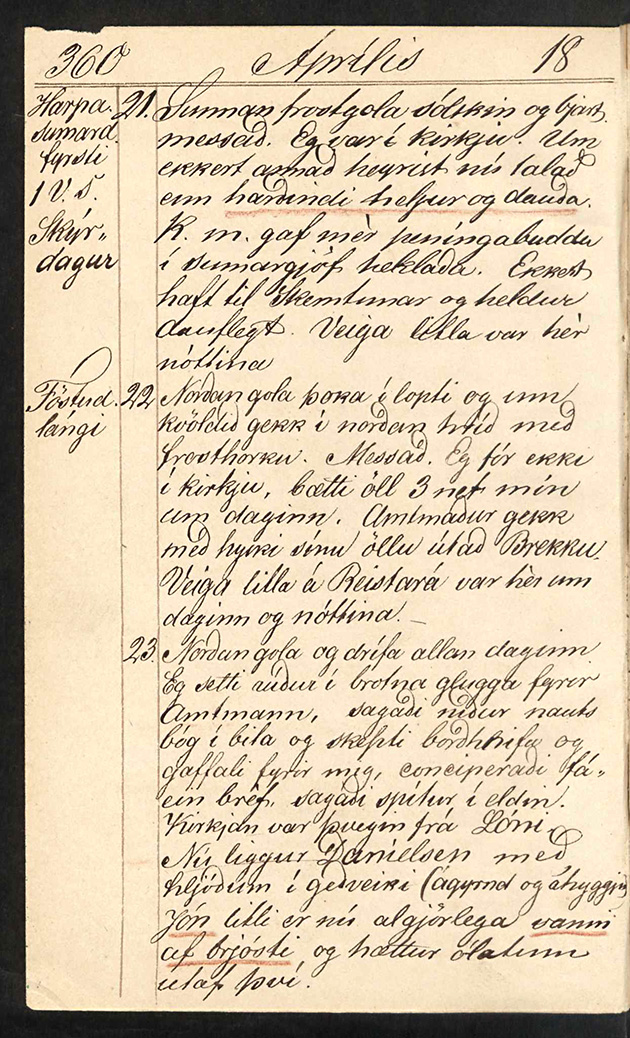 360 Áprílis 18
Harpa. 21. Sunnan frostgola sólskin og bjart.
sumard. messað. Eg var í kirkju. Um
fyrsti ekkert annað heyrist nú talað
1 V. S. enn harðindi heljur og dauða.
Skýr- K. m. gaf mèr peníngabuddu
dagur í sumargjöf heklaða. Ekkert
haft til Skemtunar og heldur
dauflegt. Veiga litla var hèr
nóttina
Föstud. 22 Norðan gola þoka í lopti og um
lángi kvöldið gekk í norðan hríð með
frosthörku. Messað. Eg fór ekki
í kirkju, bætti öll 3 net mín
um daginn. Amtmaður gekk
með hyski sínu öllu útað Brekku.
Veiga litla á Reistará var hèr um
daginn og nóttina.
23. Norðan gola og drífa allan daginn
Eg setti rúður í brotna glugga fyrir
Amtmann, sagaði niður nauts
bóg í bita og skepti borðhnífa og
gaffali fyrir mig, conciperaði fá-
ein bréf, sagaði spítur í eldin.
Kirkjan var þvegin frá Lóni.
Nú liggur Daníelsen með
hljóðum í geðveiki (ágyrnd og áhyggju)
Jón litli er nú algjörlega vanin
af brjósti og hættur ólátum
utaf því.